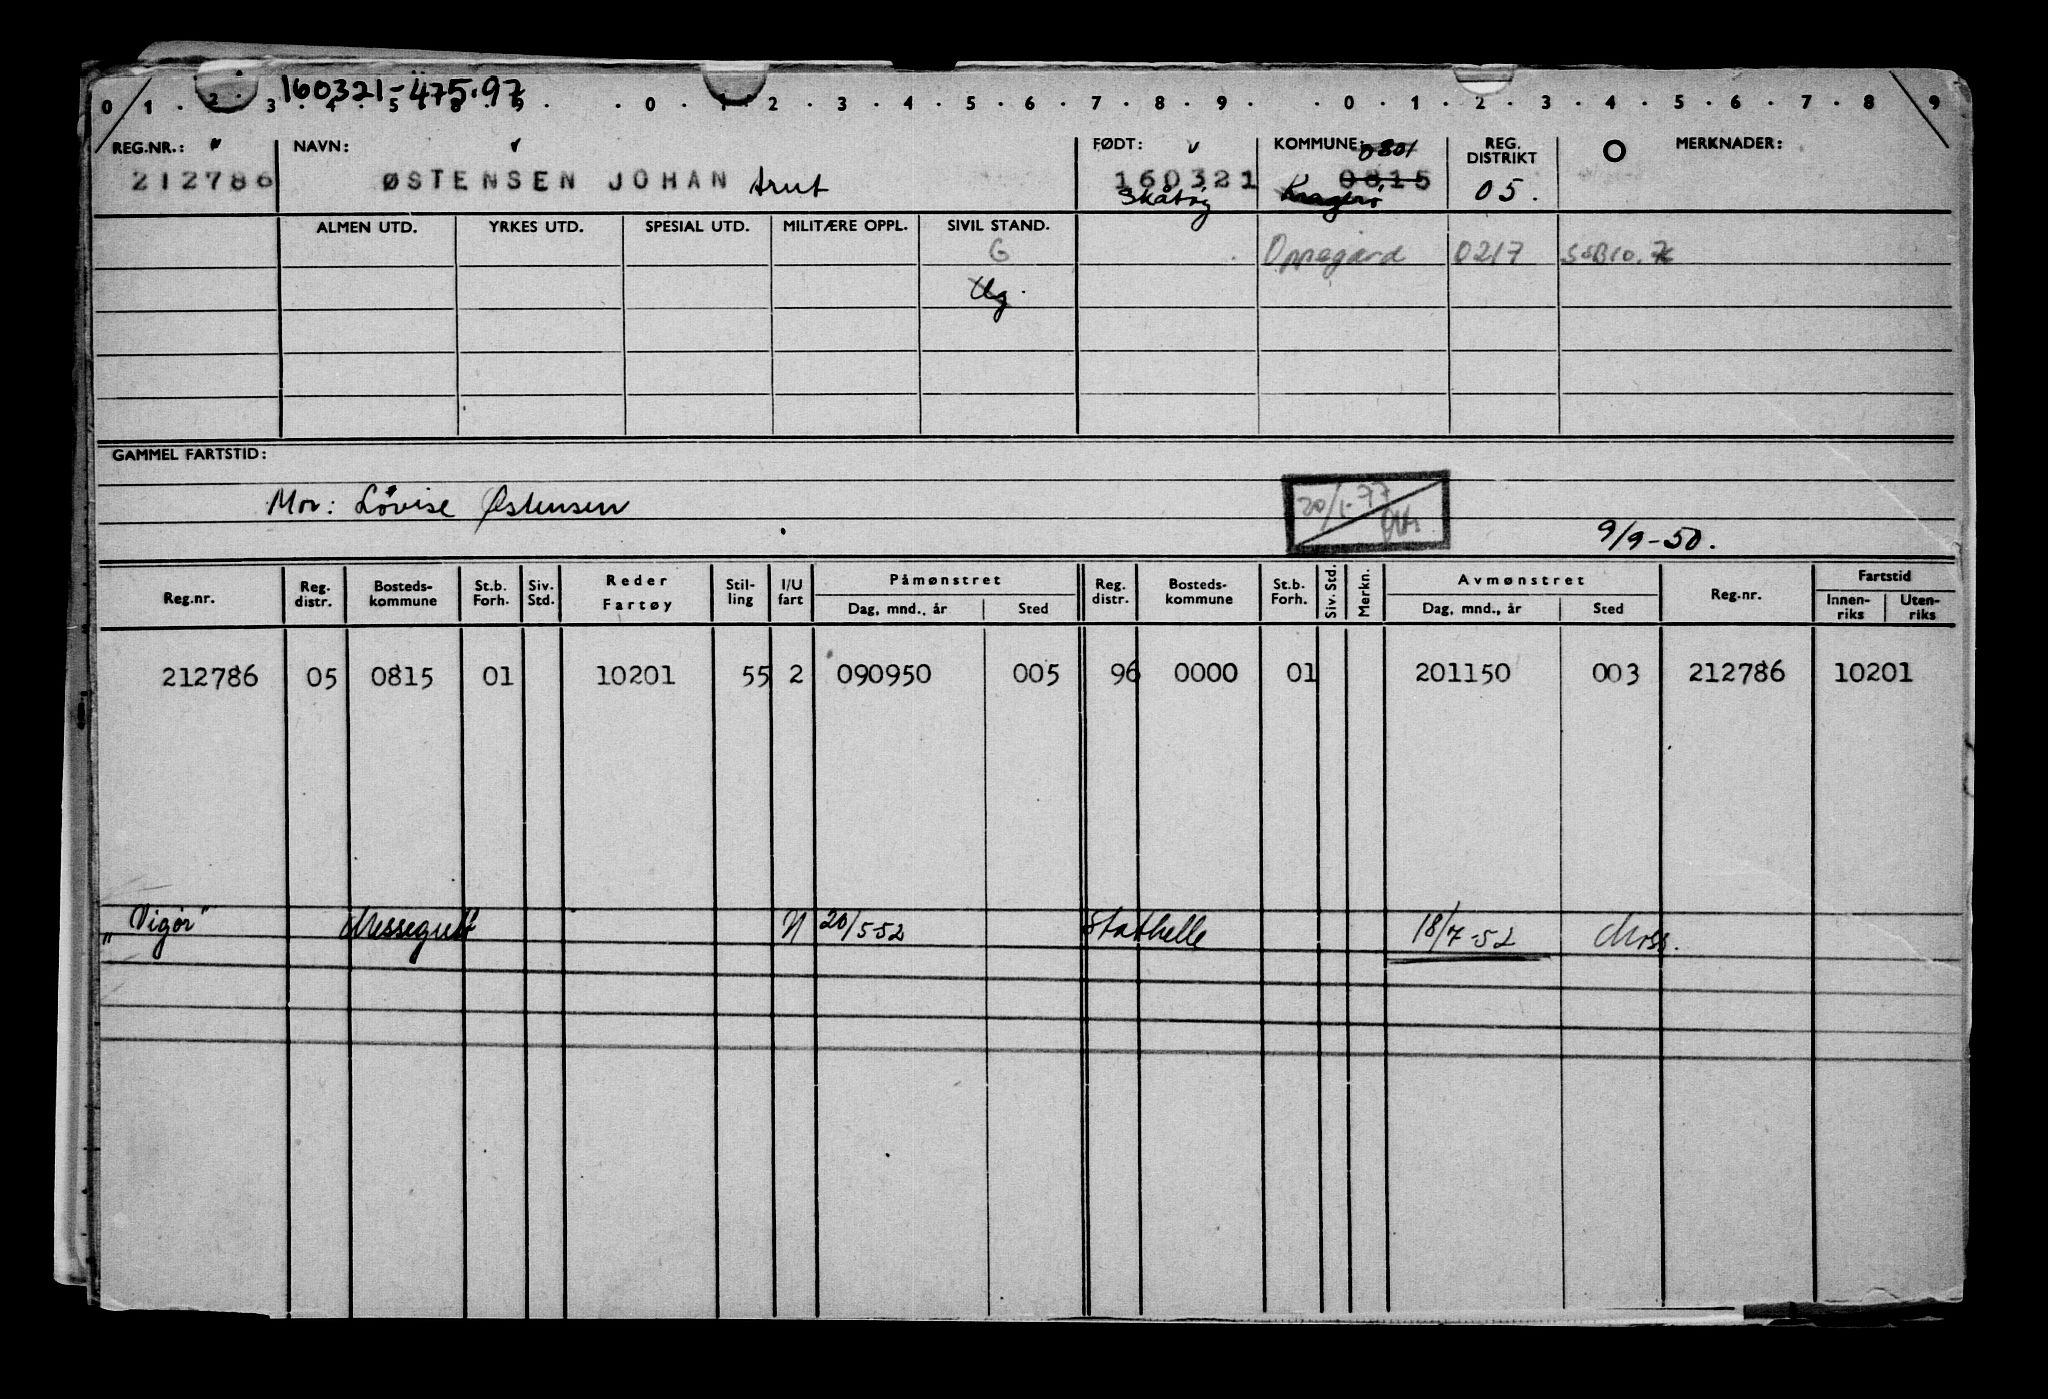 160321-475.97
0 1 . 2 . 3 . 4 . 5 . 8 . 9 . . 0 . 1 . 2 . 3 . 4 . 5 . 6 . 7 . 8 . 9 . . 0 . 1 . 2 . 3 . 4 . 5 . 6 . 7 . 8 . 9
REG.NR.: NAVN: FØDT: KOMMUNE: 0801 REG. DISTRIKT MERKNADER:
212786 ØSTENSEN JOHAN 160321 0815 05.
Skåtøy Kragerø
ALMEN UTD. YRKES UTD. SPESIAL UTD. MILITÆRE OPPL. SIVIL STAND.
G Oppegård 0217
Ug.
GAMMEL FARTSTID:
Mor: Lovise Østensen 20/1-77
9/9-50.
Reg.nr. Reg. distr. Bosteds- kommune St.b. Forh. Siv. Std. Reder Fartøy Stil- ling I/U fart Påmønstret Dag, mnd., år Sted Reg. distr. Bosteds- kommune St.b. Forh. Siv. Std. Merkn. Avmønstret Dag, mnd., år Sted Reg.nr. Fartstid Innen- riks Uten- riks
212786 05 0815 01 10201 55 2 090950 005 96 0000 01 201150 003 212786 10201
"Vigør" Messegutt N 20/5-52 Stathelle 18/7-52 Moss.